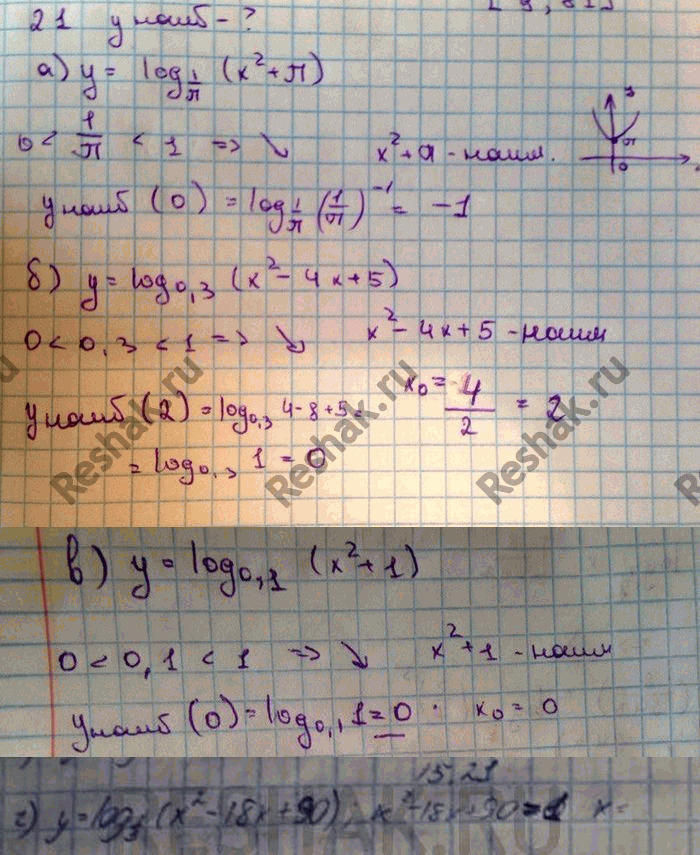 21 y наиб - ?
а) y = log_{1/π} (x² + π)
0 < 1/π < 1 => ↘ x² + π - наим.
y наиб (0) = log_{1/π} (1/π)^{-1} = -1
б) y = log_{0,3} (x² - 4x + 5)
0 < 0,3 < 1 => ↘ x² - 4x + 5 - наим
y наиб (2) = log_{0,3} 4 - 8 + 5 = x₀ = 4/2 = 2
= log_{0,3} 1 = 0
Reshak.ru Reshak.ru Reshak.ru
в) y = log_{0,1} (x² + 1)
0 < 0,1 < 1 => ↘ x² + 1 - наим
y наиб (0) = log_{0,1} 1 = 0 . x₀ = 0
15.21
г) y = log (x² - 18x + 90); x² - 18x + 90 x =
RESHAK.RU